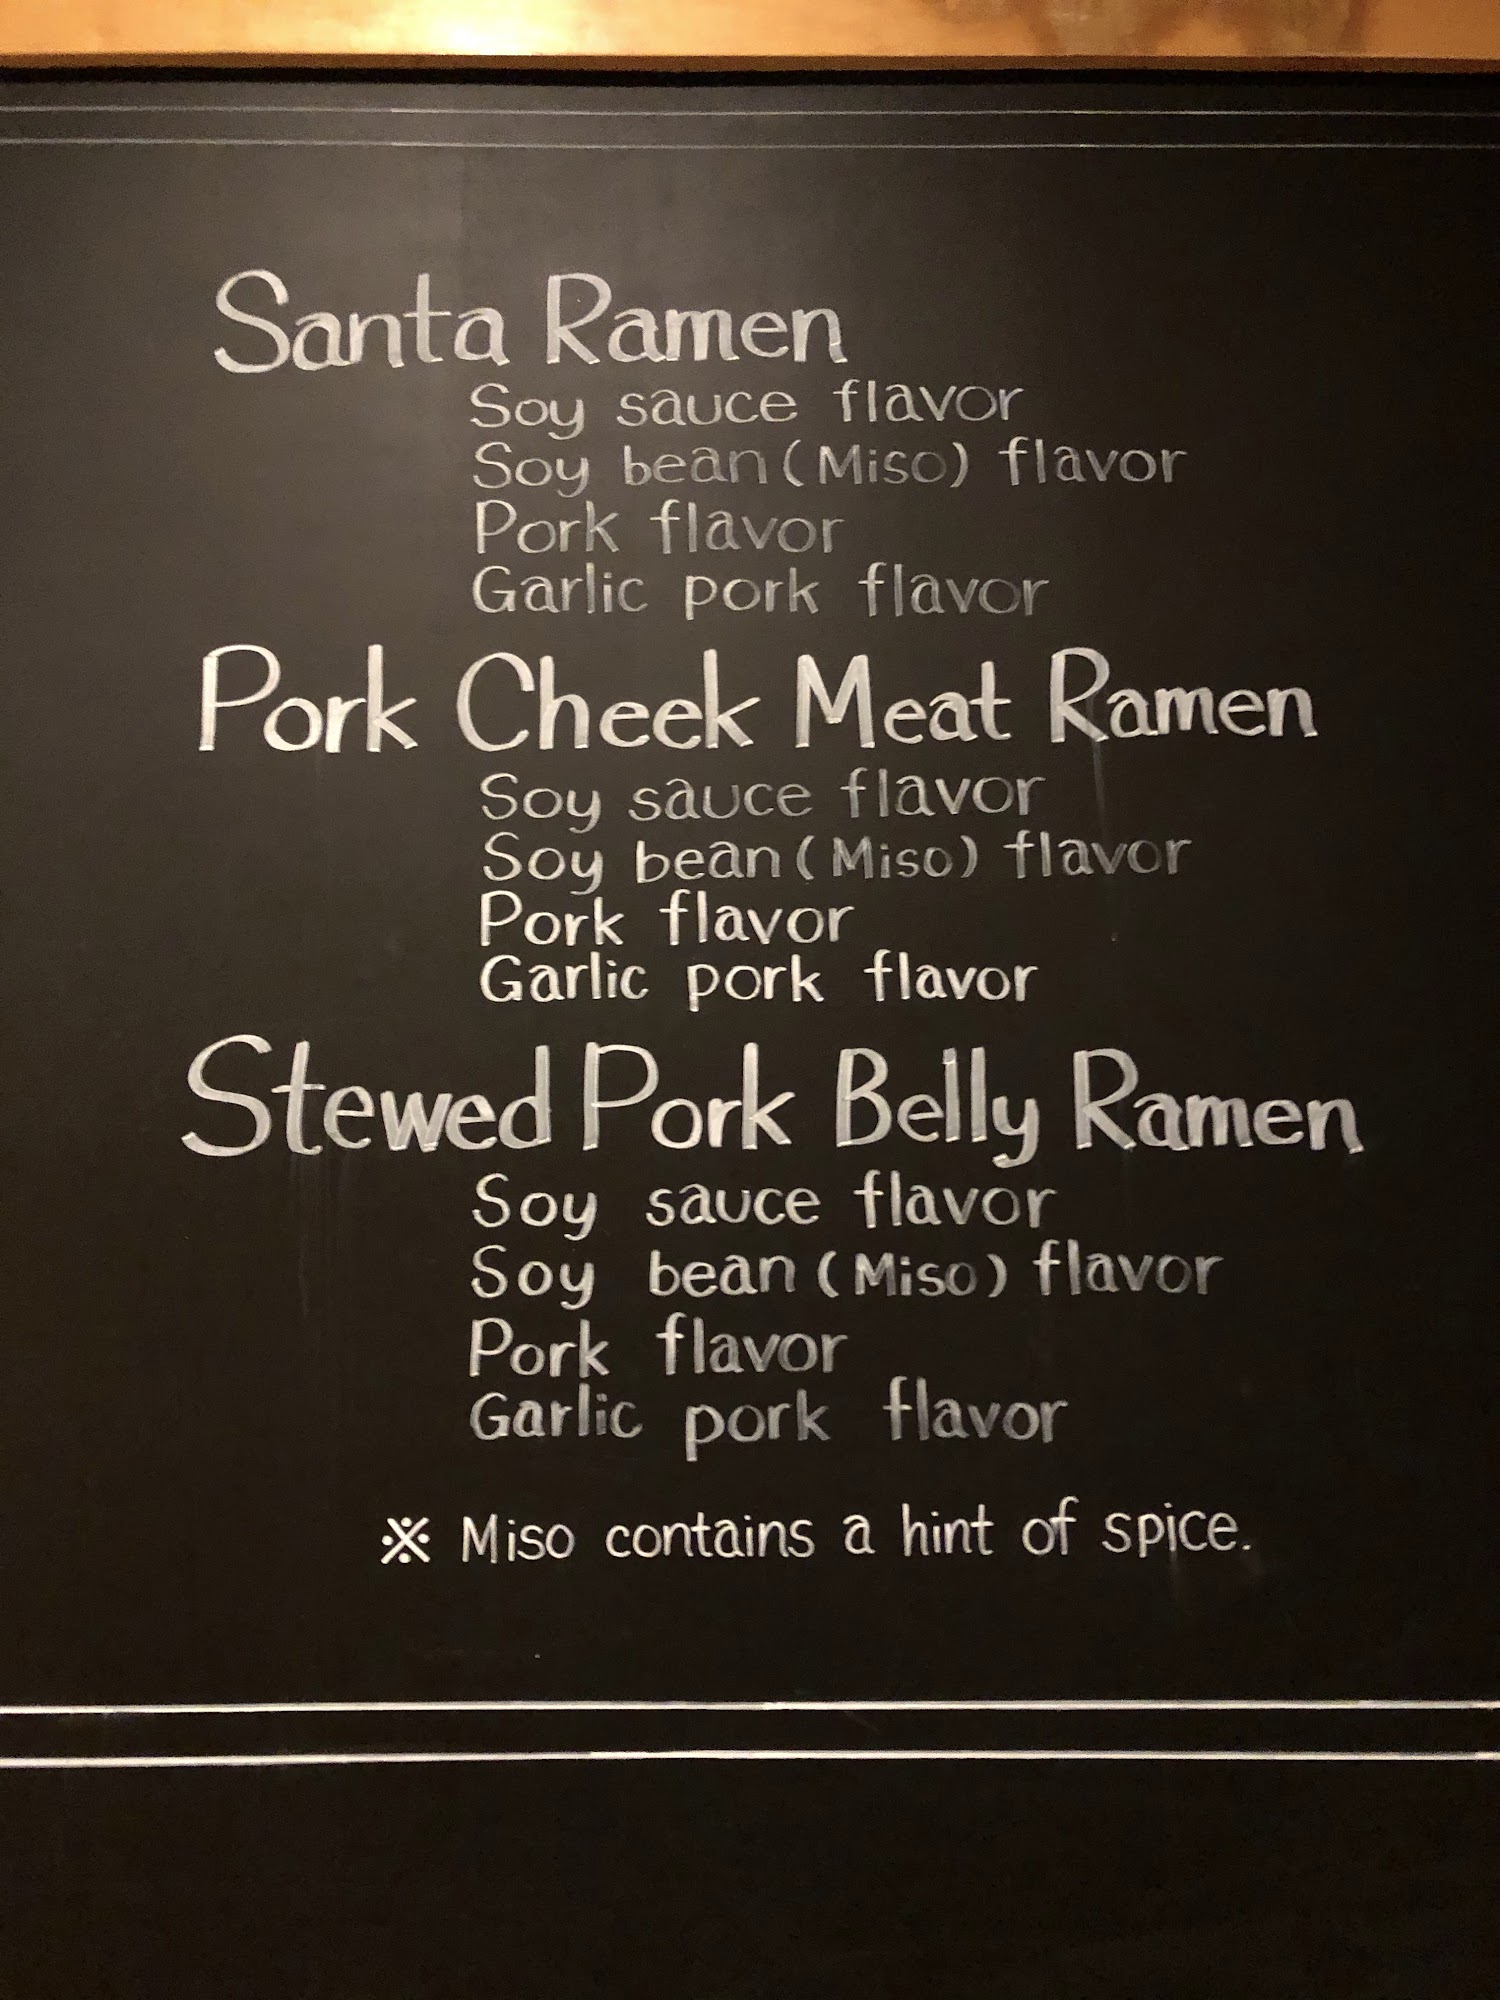 Santa Ramen
Soy sauce flavor
Soy bean (Miso) flavor
Pork flavor
Garlic pork flavor
Pork Cheek Meat Ramen
Soy sauce flavor
Soy bean (Miso) flavor
Pork flavor
Garlic pork flavor
Stewed Pork Belly Ramen
Soy sauce flavor
Soy bean (Miso) flavor
Pork flavor
Garlic pork flavor
※ Miso contains a hint of spice.